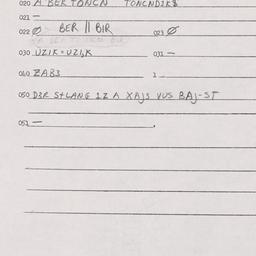 020 A BER TONCN TONCND1K$
021 —
022 Ø BER || BIR 023 Ø
030 UZIK = UZI,K 031 —
040 ZAB3
050 D3R S+LANG 1Z A XAJS VUS BAJ-ST
051 —